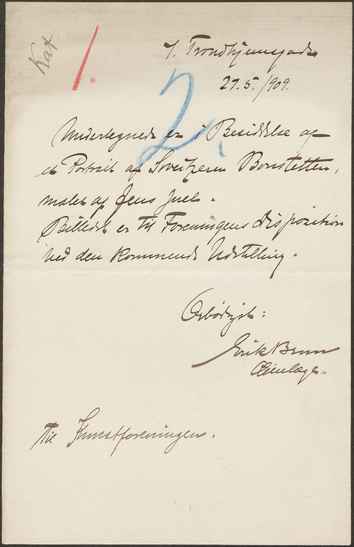 Kat
1.
2.
7. Trondhjemsgade
27.5./909.
Undertegnede er i Besiddelse af
et Portrait af Sweitzeren Bonstetten,
malet af Jens Juel.
Billedet er til Foreningens Disposition
ved den kommende Udstilling.
Ærbødigst:
Erik Brun
Til Kunstforeningen.